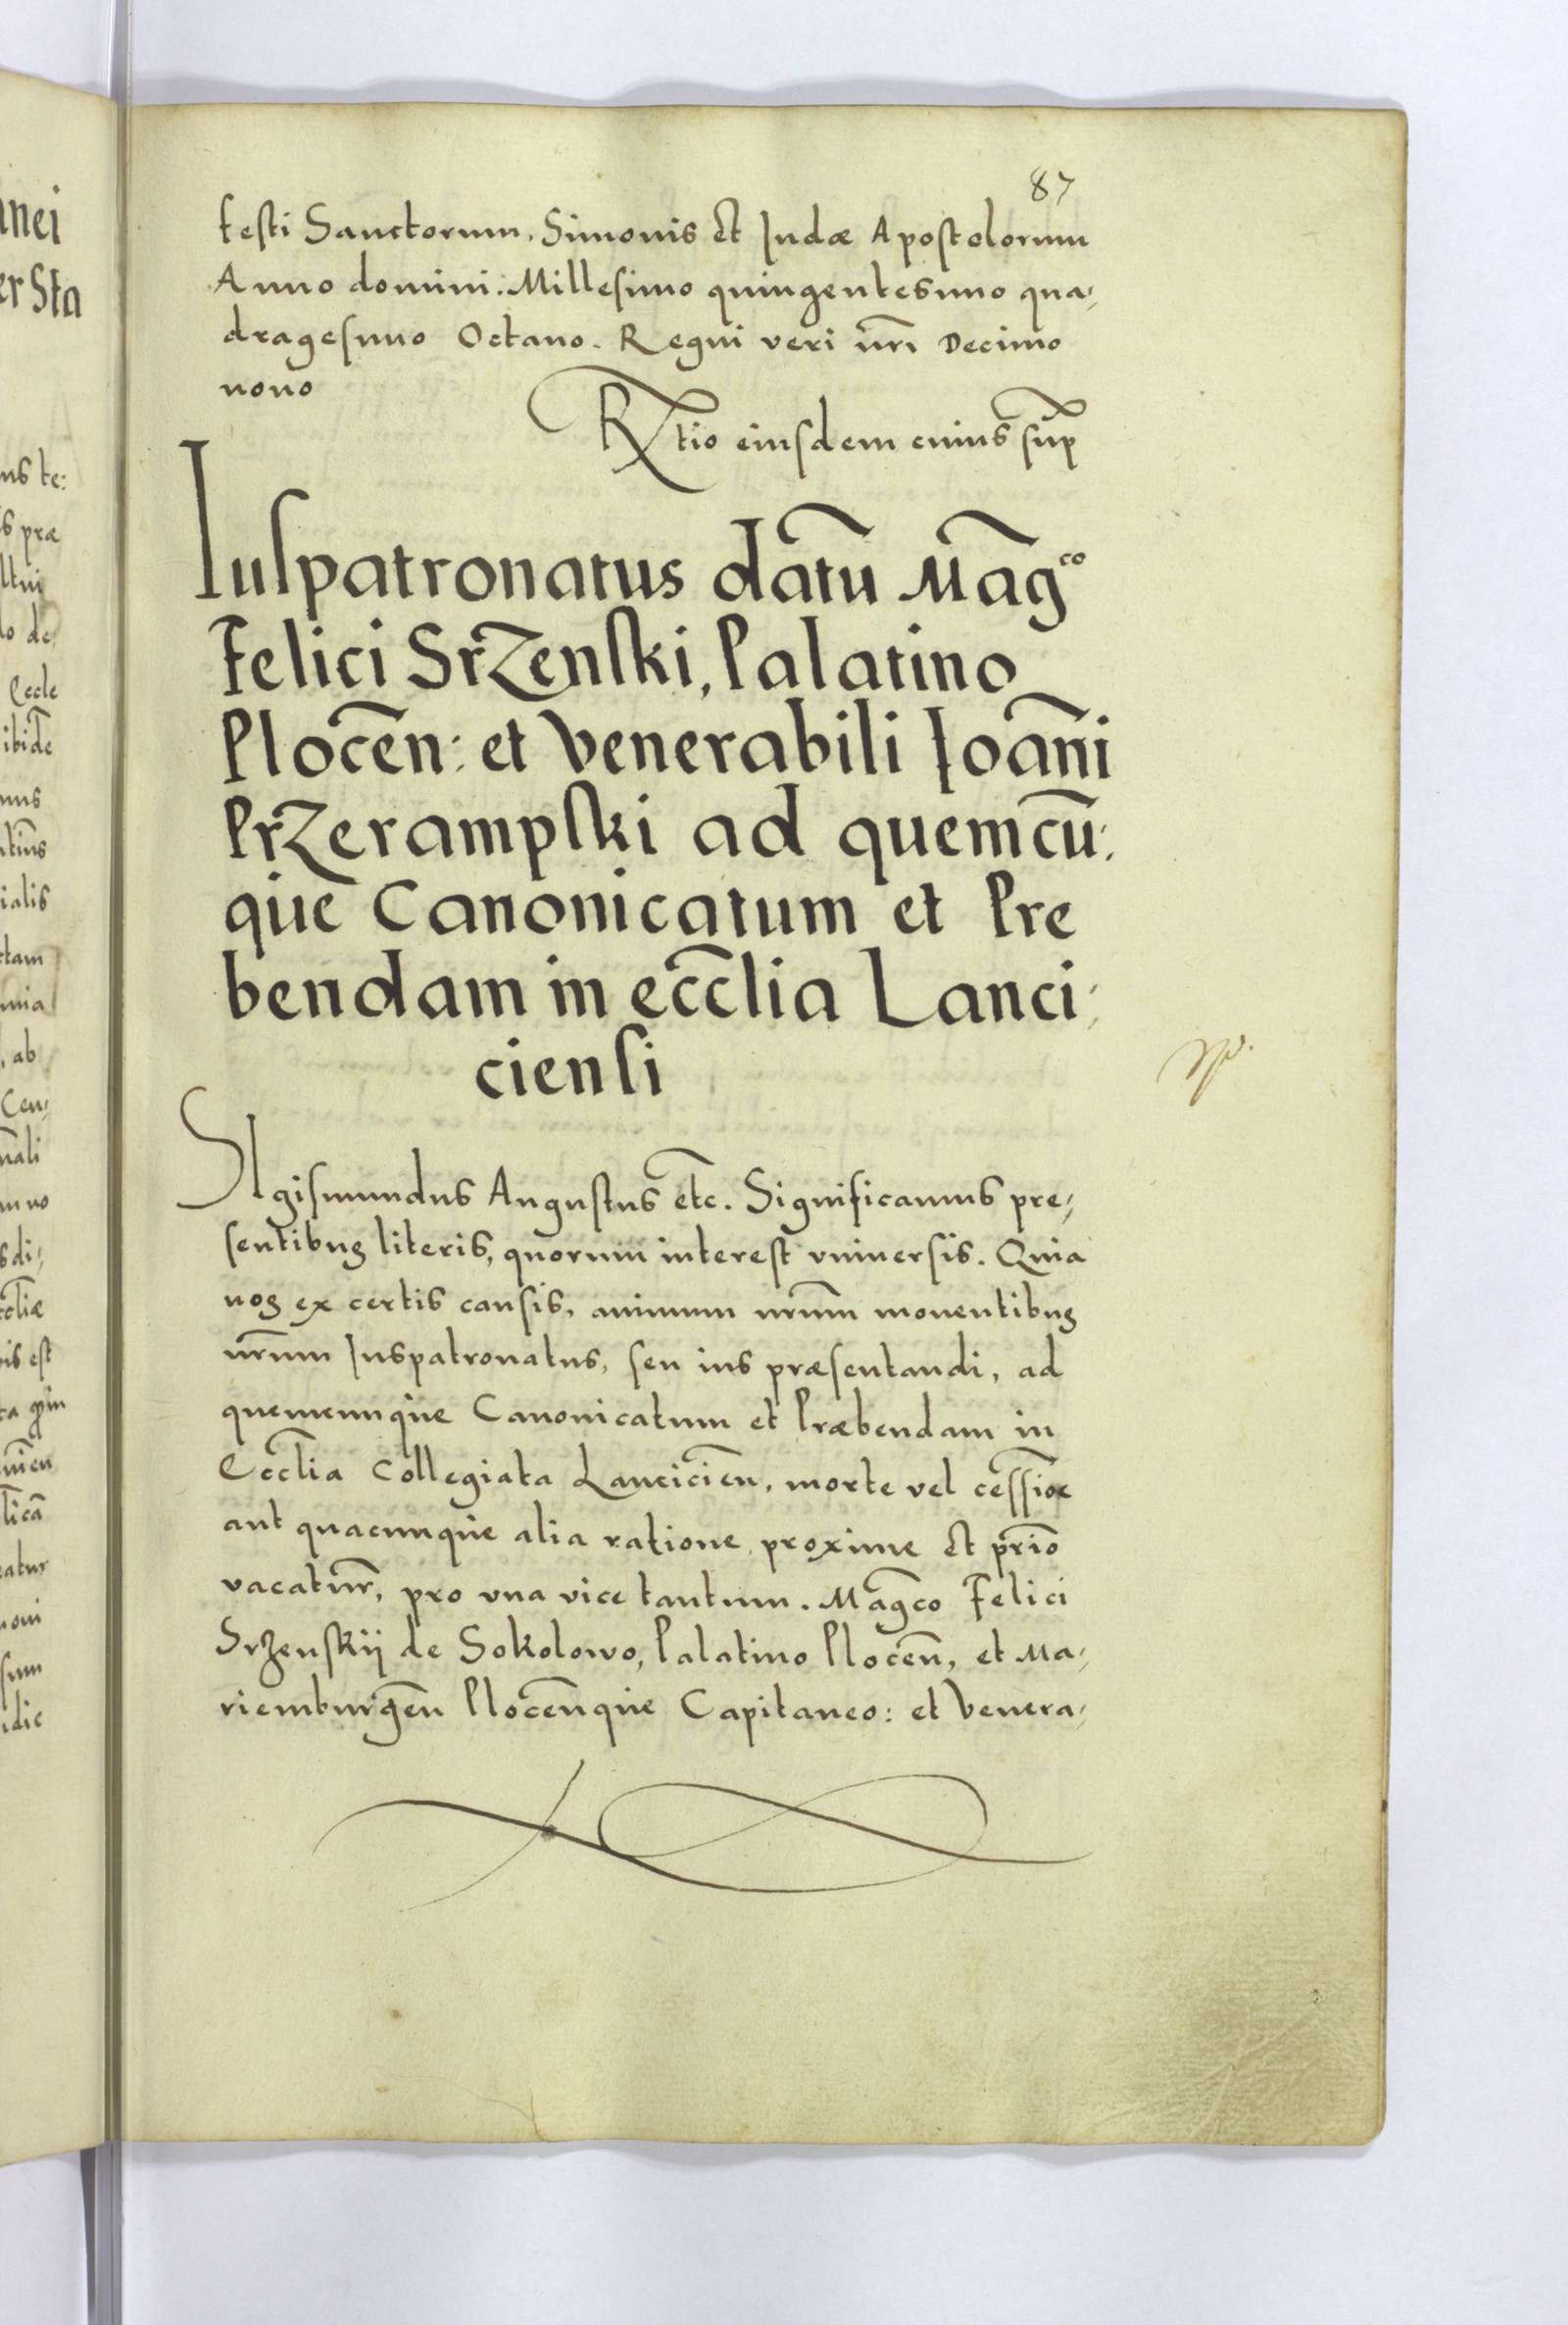 87
festi Sanctorum, Simonis Et Iudæ Apostolorum
Anno domini: Millesimo quingentesimo qua,
dragesimo Octauo. Regni veri nr̃i Decimo
nono
Rtio eiusdem cuius sup̃
Iuspatronatus datũ Mãg co
Felici Srzenski, Palatino
Plocen̄: et Venerabili Ioañi
Przerampski ad quemcũ,
que Canonicatum et Pre
bendam in eccl̃ia Lanci,
ciensi
SIgismundus Augustus etc̃. Significamus pre,
sentibus literis, quorum interest vniuersis. Quia
nos ex certis causis, animum nr̃um mouentibus
nr̃um Iuspatronatus, seu ius præsentandi, ad
quemcunque Canonicatum et Præbendam in
Eccl̃ia Collegiata Lancicien̄, morte vel cessiõe
aut quacunque alia ratione proxime Et prĩo
vacatur̃, pro vna vice tantum. Mag̃co Felici
Srzenskij de Sokolowo, Palatino Plocen̄, et Ma,
riemburgen̄ Plocen̄que Capitaneo: et Venera,
nei
er Sta
ns te:
s præ
ltui
lo de
Eccle
ibidẽ
mus
ialis
ctam
, ab
Cen,
nali
sdi,
cl̃iæ
is est
licã
eatur
noni
sum
idic